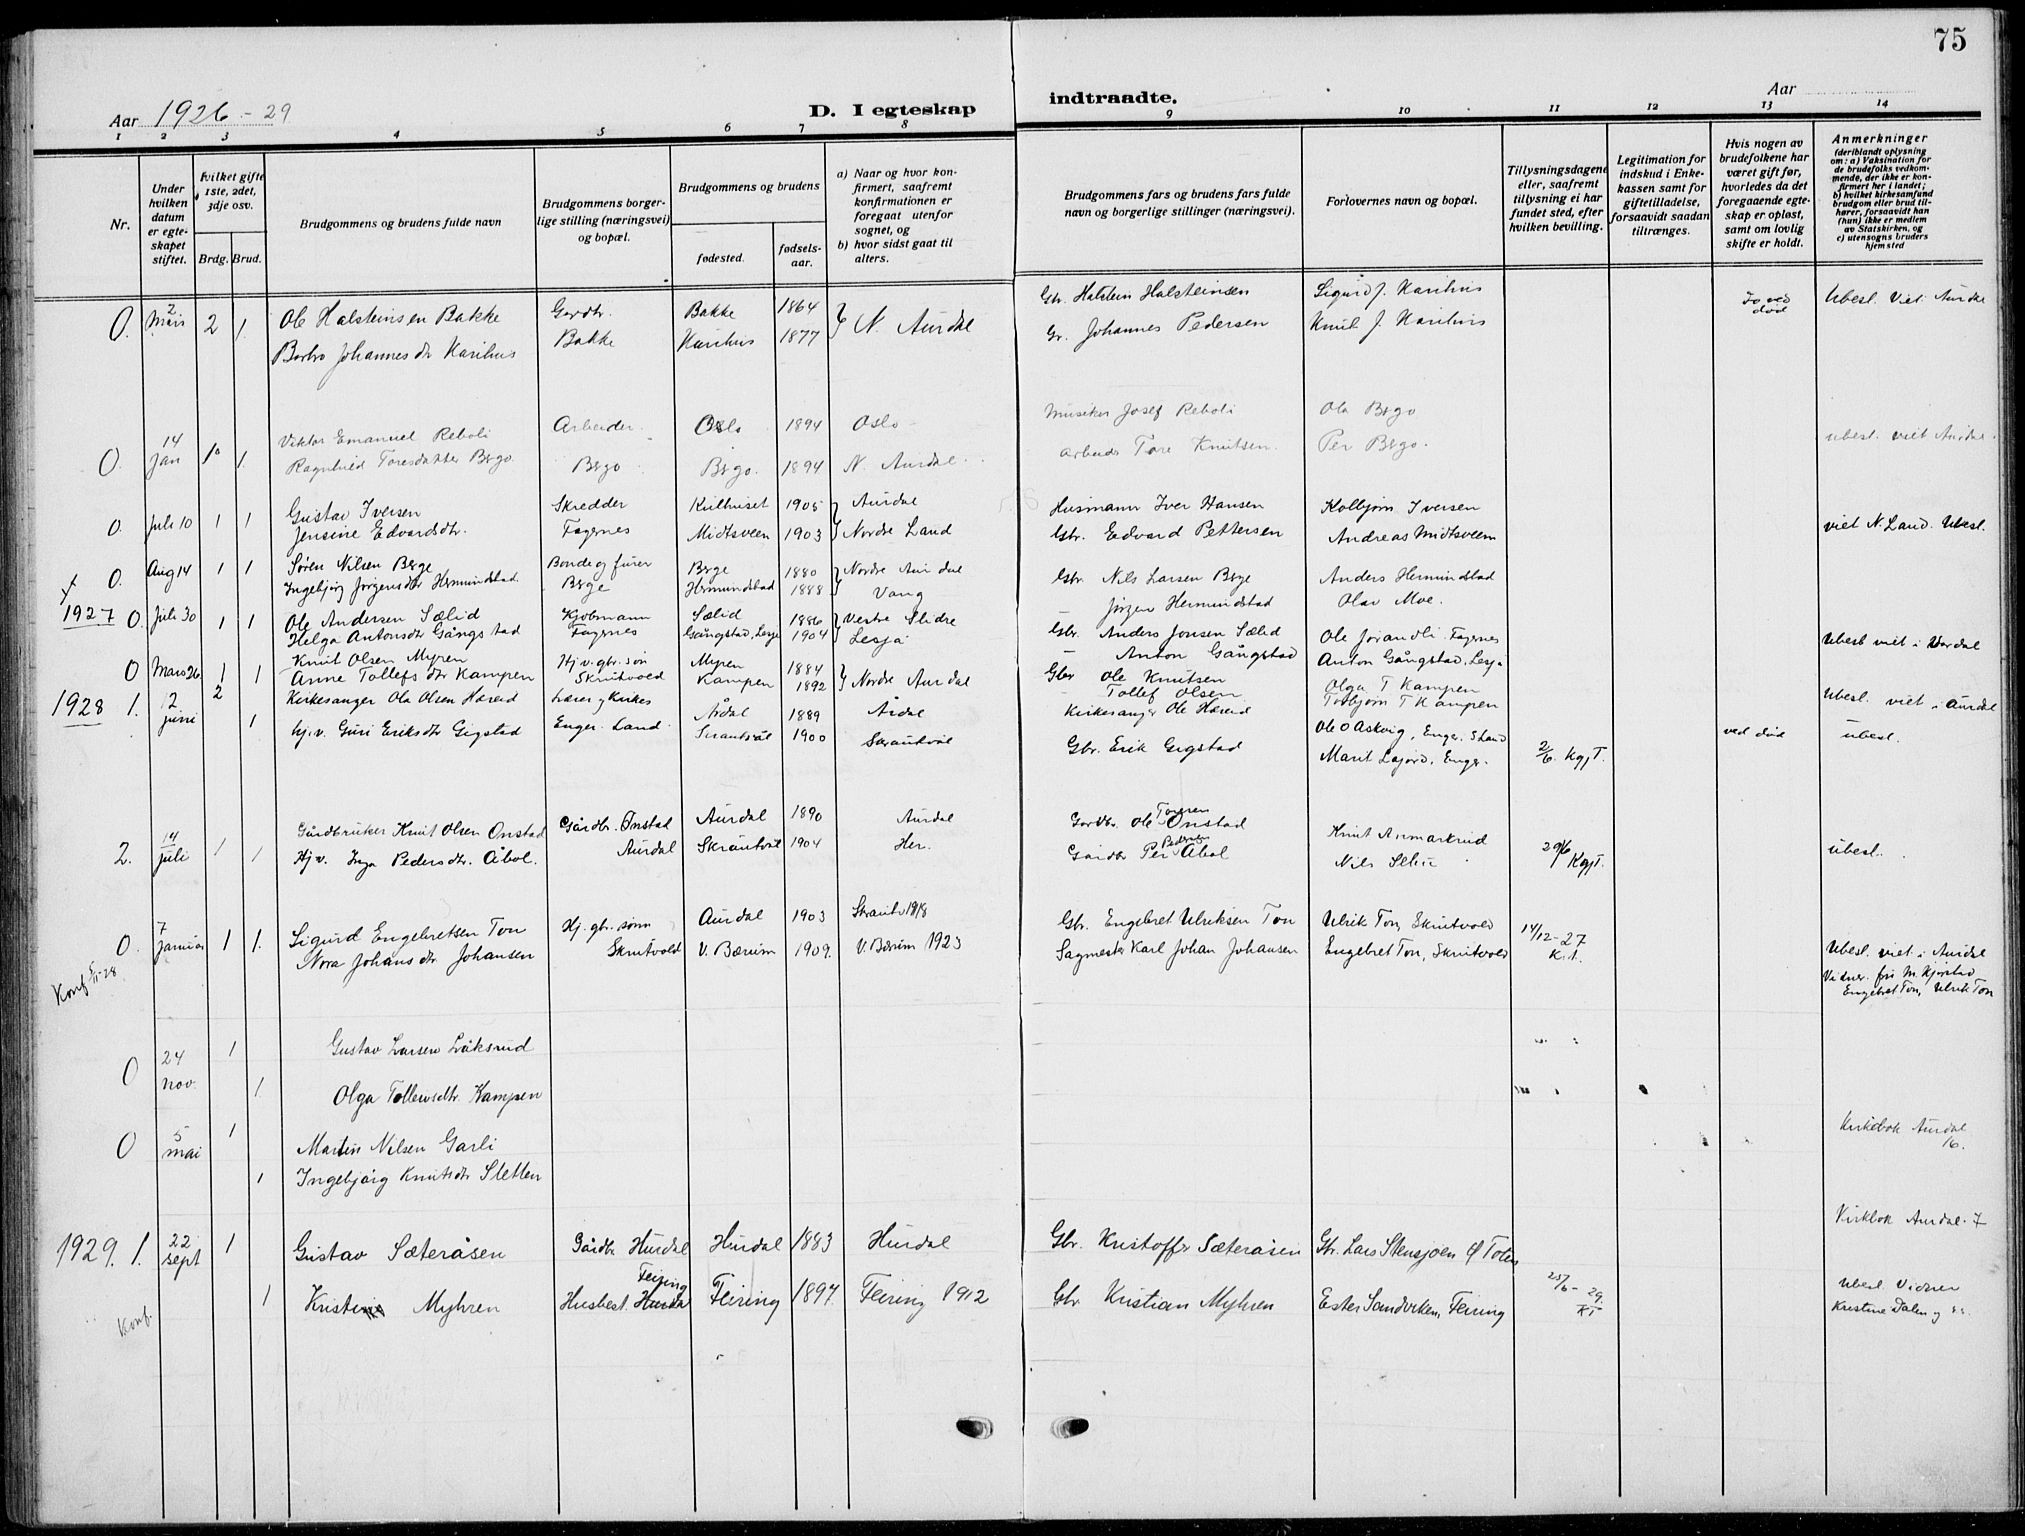 75
Aar 1926-29
D. I egteskap
indtraadte.
Aar
1 2 3 4 5 6 7 8 9 10 11 12 13 14
Nr.
Under hvilken datum er egteskapet stiftet.
Hvilket gifte 1ste, 2det, 3dje osv.
Brdg. Brud.
Brudgommens og brudens fulde navn
Brudgommens borgerlige stilling (næringsvei) og bopæl.
Brudgommens og brudens
fødested.
fødselsaar.
a) Naar og hvor konfirmert, saafremt konfirmationen er foregaat utenfor sognet, og
b) hvor sidst gaat til alters.
Brudgommens fars og brudens fars fulde navn og borgerlige stillinger (næringsvei).
Forlovernes navn og bopæl.
Tillysningsdagene eller, saafremt tillysning ei har fundet sted, efter hvilken bevilling.
Legitimation for indskud i Enkekassen samt for giftetilladelse, forsaavidt saadan tiltrænges.
Hvis nogen av brudefolkene har været gift før, hvorledes da det foregaaende egteskap er opløst, samt om lovlig skifte er holdt.
Anmerkninger (deriblandt oplysning om: a) Vaksination for de brudefolks vedkommende, der ikke er konfirmert her i landet; b) hvilket kirkesamfund brudgom eller brud tilhører, forsaavidt han (hun) ikke er medlem av Statskirken, og c) utensogns bruders hjemsted
0. 2 Mars 2 1. Ole Halsteinsen Bakke Gardbr. Bakke 1864 } N. Aurdal Gbr. Halstein Halsteinsen Sigurd J. Karihus Ja ved død Ubesl. Viet Aurdal
Barbro Johannesdtr Karihus Bakke Karihus 1877 Gr. Johannes Pedersen Knut J. Karihus
0. 14 Jan 1 1. Viktor Emanuel Reboli Arbeider Oslo 1894 Oslo Musiker Josef Reboli Ola Bergo ubesl. viet Aurdal.
Ragnhild Toresdatter Bergo Bergo Bergo. 1894 N. Aurdal. Arbeider Tore Knutsen. Per Bergo.
0. Juli 10 1 1 Gustav Iversen Skredder 1905 } Aurdal Husmann Iver Hansen Kolbjørn Iversen viet N. Land. Ubesl.
Jensine Edvardsdtr. Fagernes Midtsveen 1903 Nordre Land Gbr. Edvard Pettersen Andreas Midtsveen
0. Aug 14 1 1 Søren Nilsen Berge Bonde og furer Berge 1880 } Nordre Aurdal Gbr. Nils Larsen Berge Anders Hermundstad
Ingebjørg Jørgensdtr Hermundstad Berge Hermundstad 1888 Vang Jørgen Hermundstad Olav Moe.
1927 0. Juli 30 1 1 Ole Andersen Sælid Kjøbmann Sælid 1886 } Vestre Slidre Gbr. Anders Jonsen Sælid Ole Jørandli Fagernes Ubesl viet i Vardal
Helga Antonsdtr Gångstad Fagernes Gångstad, Lesja 1904 Lesja – Anton Gångstad Anton Gångstad, Lesja
0 Mars 26 1 1 Knut Olsen Myren Hj.v. gbr. søn Myren 1884 } Nordre Aurdal Gbr Ole Knutsen Olga T Kampen Ubesl. viet i Aurdal
Anne Tollefsdtr Kampen Skrutvold Kampen 1892 Tollef Olsen Torbjørn T Kampen
1928 1. 2 juni 2 1 Kirkesanger Ola Olsen Hæreid Lærer og Kirkes Årdal 1889 Årdal Kirkesanger Ole Hæreid Ole O Askvig, Enger. S Land 2/6. KgjT. ved død ubesl.
hj.v. Guri Eriksdtr Gigstad Enger. Land. Skrautvål 1900 Skrautvål Gbr. Erik Gigstad Marit Lajord, Enger.
2. 14 juli 1 1 Gårdbruker Knut Olsen Onstad Gårdbr. Onstad Aurdal 1890 Aurdal Gardbr. Ole Toresen Onstad Knut Anmarkrud 29/6 KgjT. Ubesl.
Hj.v. Inga Pedersdtr. Åbol. Aurdal Skrautvål 1904 Her. Gårdbr Per Pedersen Åbol Nils
0. 7 Januar 1 1. Sigurd Engebretsen Ton Hj. gbr. sønn Aurdal 1903 Skrautv. 1918 Gbr. Engebret Ulriksen Ton Ulrik Ton, Skrutvold 14/12-27 K.T. Ubesl. viet i Aurdal
Konf. -28 Nora Johansdtr Johansen Skrutvold V. Bærum 1909. V. Bærum 1923 Sagmester Karl Johan Johansen Engebret Ton, Skrutvold Vidner. fru M. Kjørstad Engebret Ton, Ulrik Ton
0 24 nov. 1 Gustav Larsen Låksrud
1 Olga Tollevsdtr. Kampen
0 5 mai 1 Martin Nilsen Garli Kirkebok Aurdal 16.
1 Ingebjørg Knutsdtr Sletten
1929. 1. 22 sept 1 Gustav Sæteråsen Gårdbr Hurdal Hurdal 1883 Hurdal Gbr. Kristoffer Sæteråsen Gbr. Lars Stensjøen Ø Toten Kirkbok Aurdal. 7
Konf. 1 Kristine Myhren Husbest. Hurdal Feiring Feiring 1897 Feiring 1912 Gbr Kristian Myhren Ester Sandviken, Feiring 25/6-29. KT Ubesl Vidner Kristine Dalen og